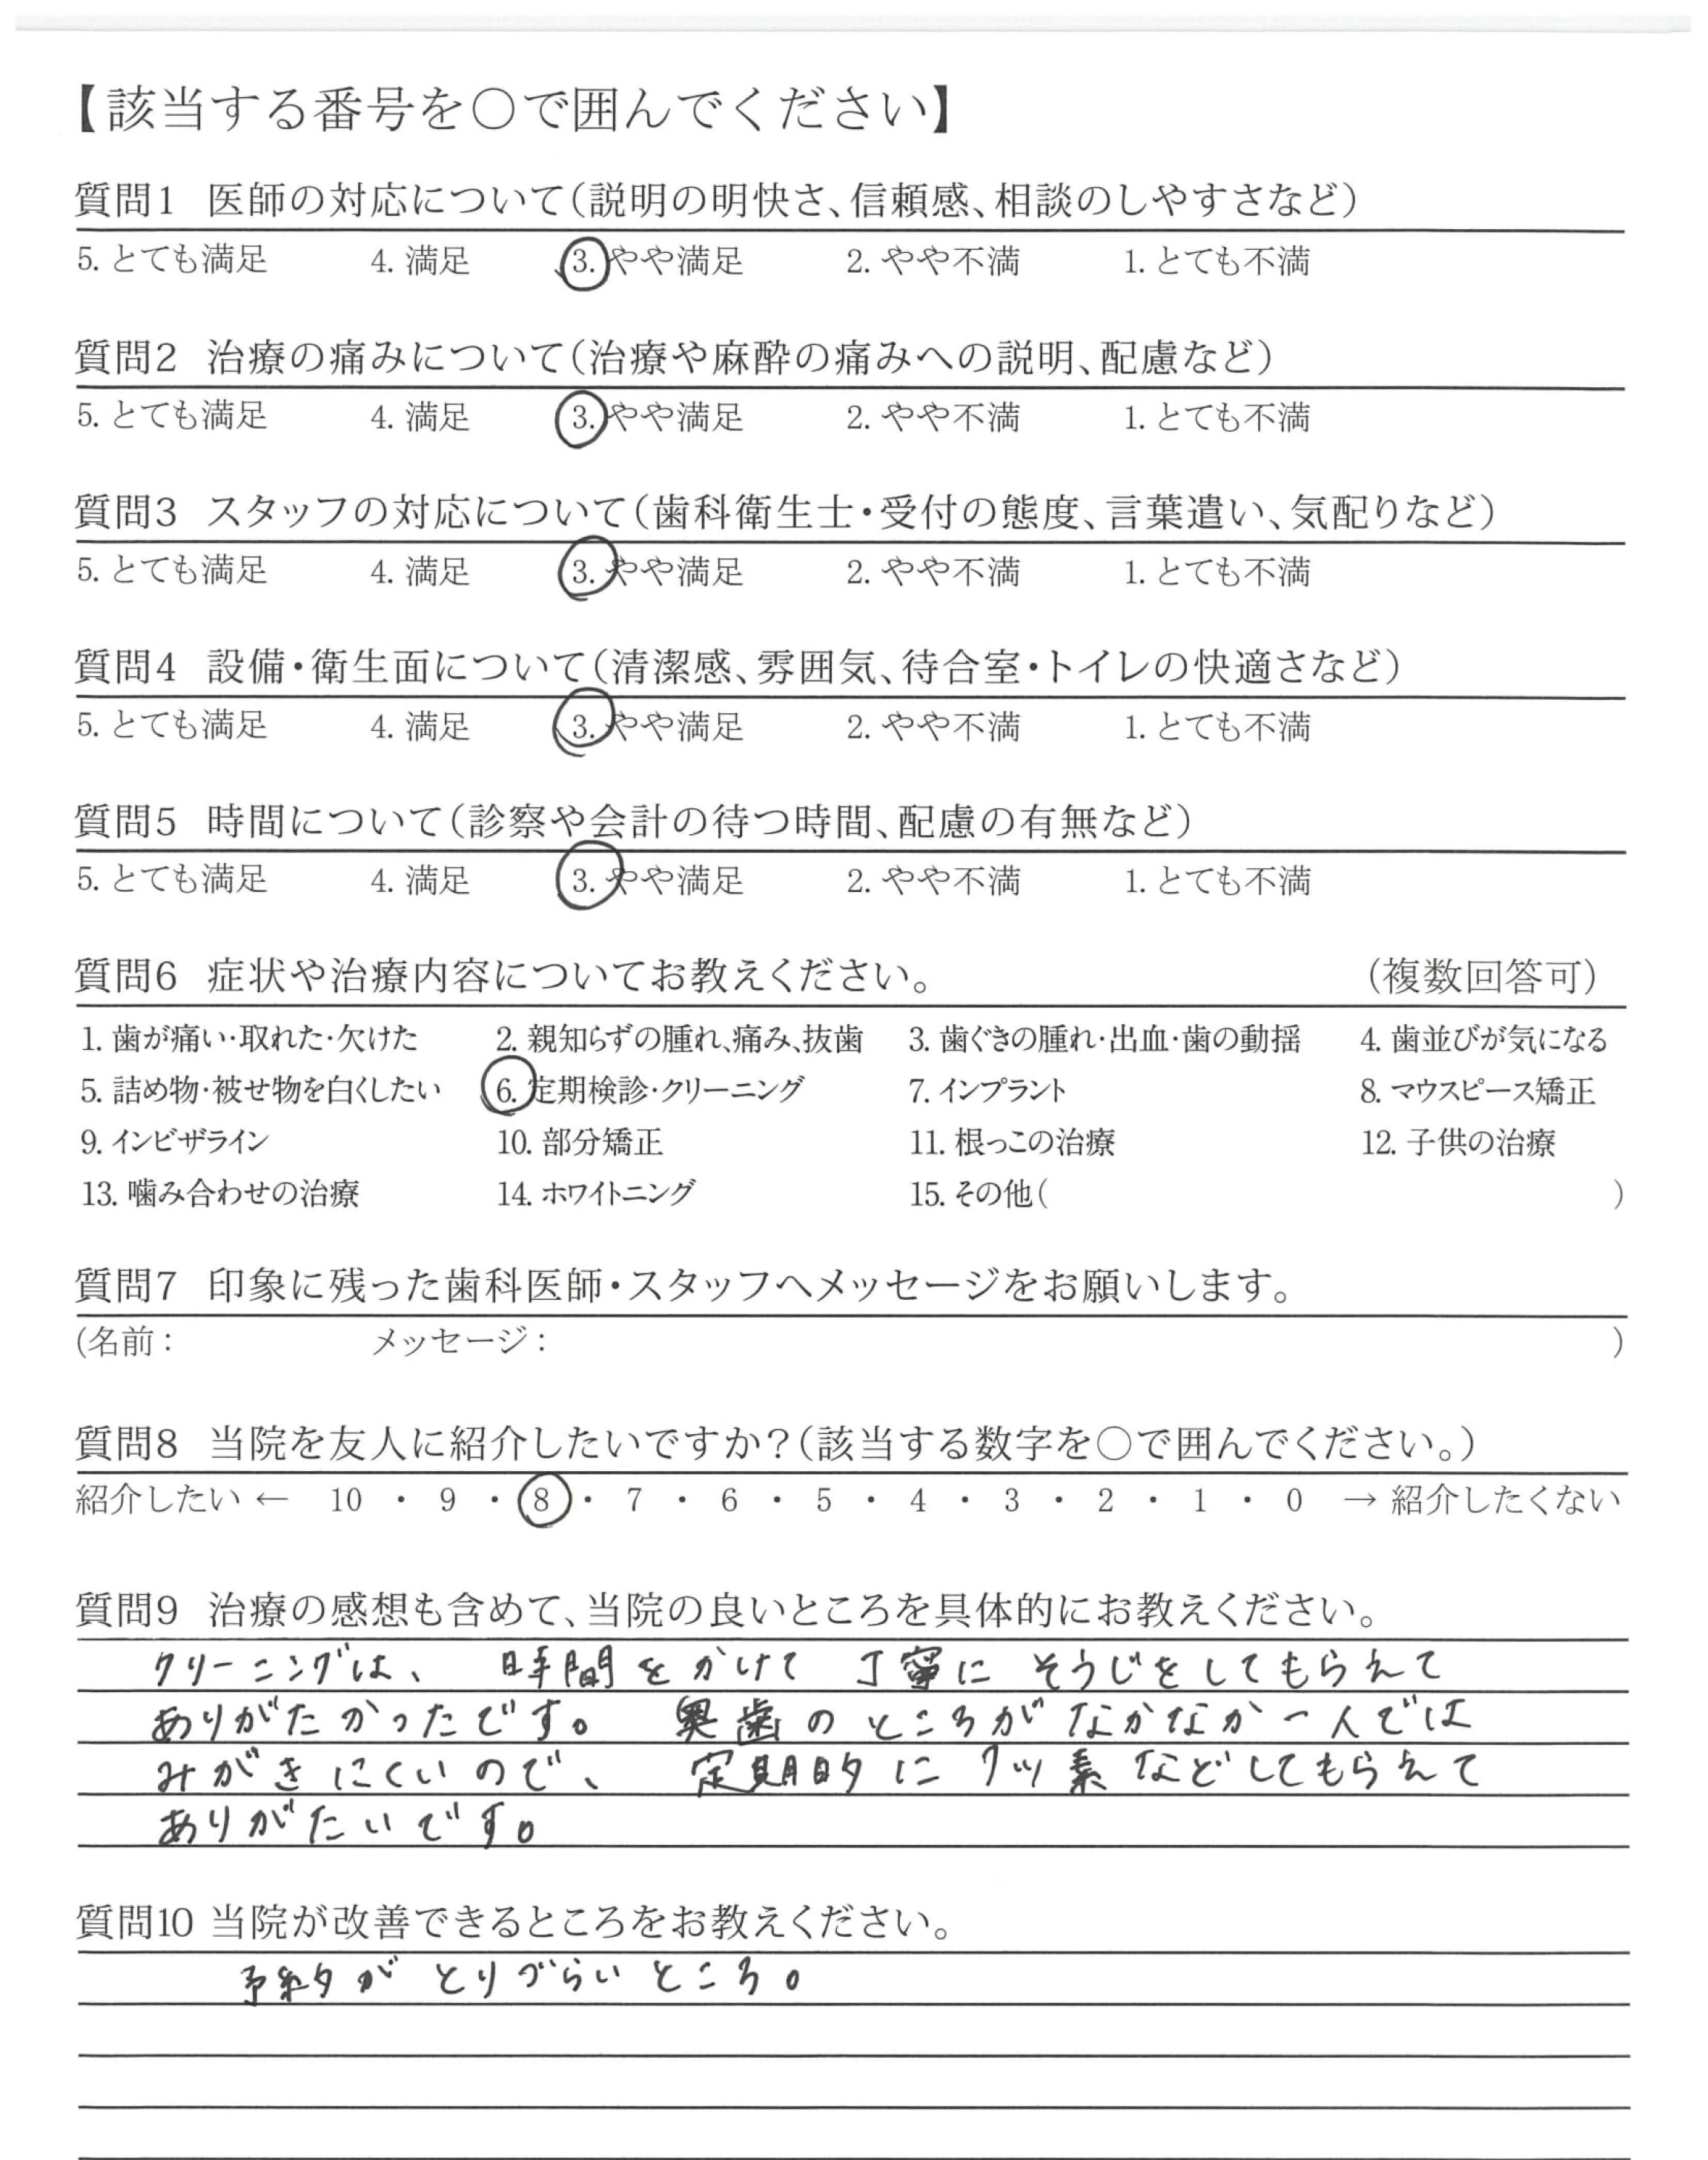 【該当する番号を○で囲んでください】
質問1 医師の対応について(説明の明快さ、信頼感、相談のしやすさなど)
5. とても満足 4. 満足 3. やや満足 2. やや不満 1. とても不満
質問2 治療の痛みについて(治療や麻酔の痛みへの説明、配慮など)
5. とても満足 4. 満足 3. やや満足 2. やや不満 1. とても不満
質問3 スタッフの対応について(歯科衛生士・受付の態度、言葉遣い、気配りなど)
5. とても満足 4. 満足 3. やや満足 2. やや不満 1. とても不満
質問4 設備・衛生面について(清潔感、雰囲気、待合室・トイレの快適さなど)
5. とても満足 4. 満足 3. やや満足 2. やや不満 1. とても不満
質問5 時間について(診察や会計の待つ時間、配慮の有無など)
5. とても満足 4. 満足 3. やや満足 2. やや不満 1. とても不満
質問6 症状や治療内容についてお教えください。 (複数回答可)
1. 歯が痛い・取れた・欠けた 2. 親知らずの腫れ、痛み、抜歯 3. 歯ぐきの腫れ・出血・歯の動揺 4. 歯並びが気になる
5. 詰め物・被せ物を白くしたい 6. 定期検診・クリーニング 7. インプラント 8. マウスピース矯正
9. インビザライン 10. 部分矯正 11. 根っこの治療 12. 子供の治療
13. 噛み合わせの治療 14. ホワイトニング 15. その他( )
質問7 印象に残った歯科医師・スタッフへメッセージをお願いします。
(名前: メッセージ: )
質問8 当院を友人に紹介したいですか?(該当する数字を○で囲んでください。)
紹介したい ← 10 ・ 9 ・ 8 ・ 7 ・ 6 ・ 5 ・ 4 ・ 3 ・ 2 ・ 1 ・ 0 → 紹介したくない
質問9 治療の感想も含めて、当院の良いところを具体的にお教えください。
クリーニングは、 時間をかけて 丁寧に そうじをしてもらえて
ありがたかったです。 奥歯のところがなかなか一人では
みがきにくいので、 定期的にフッ素などしてもらえて
ありがたいです。
質問10 当院が改善できるところをお教えください。
予約が とりづらいところ。